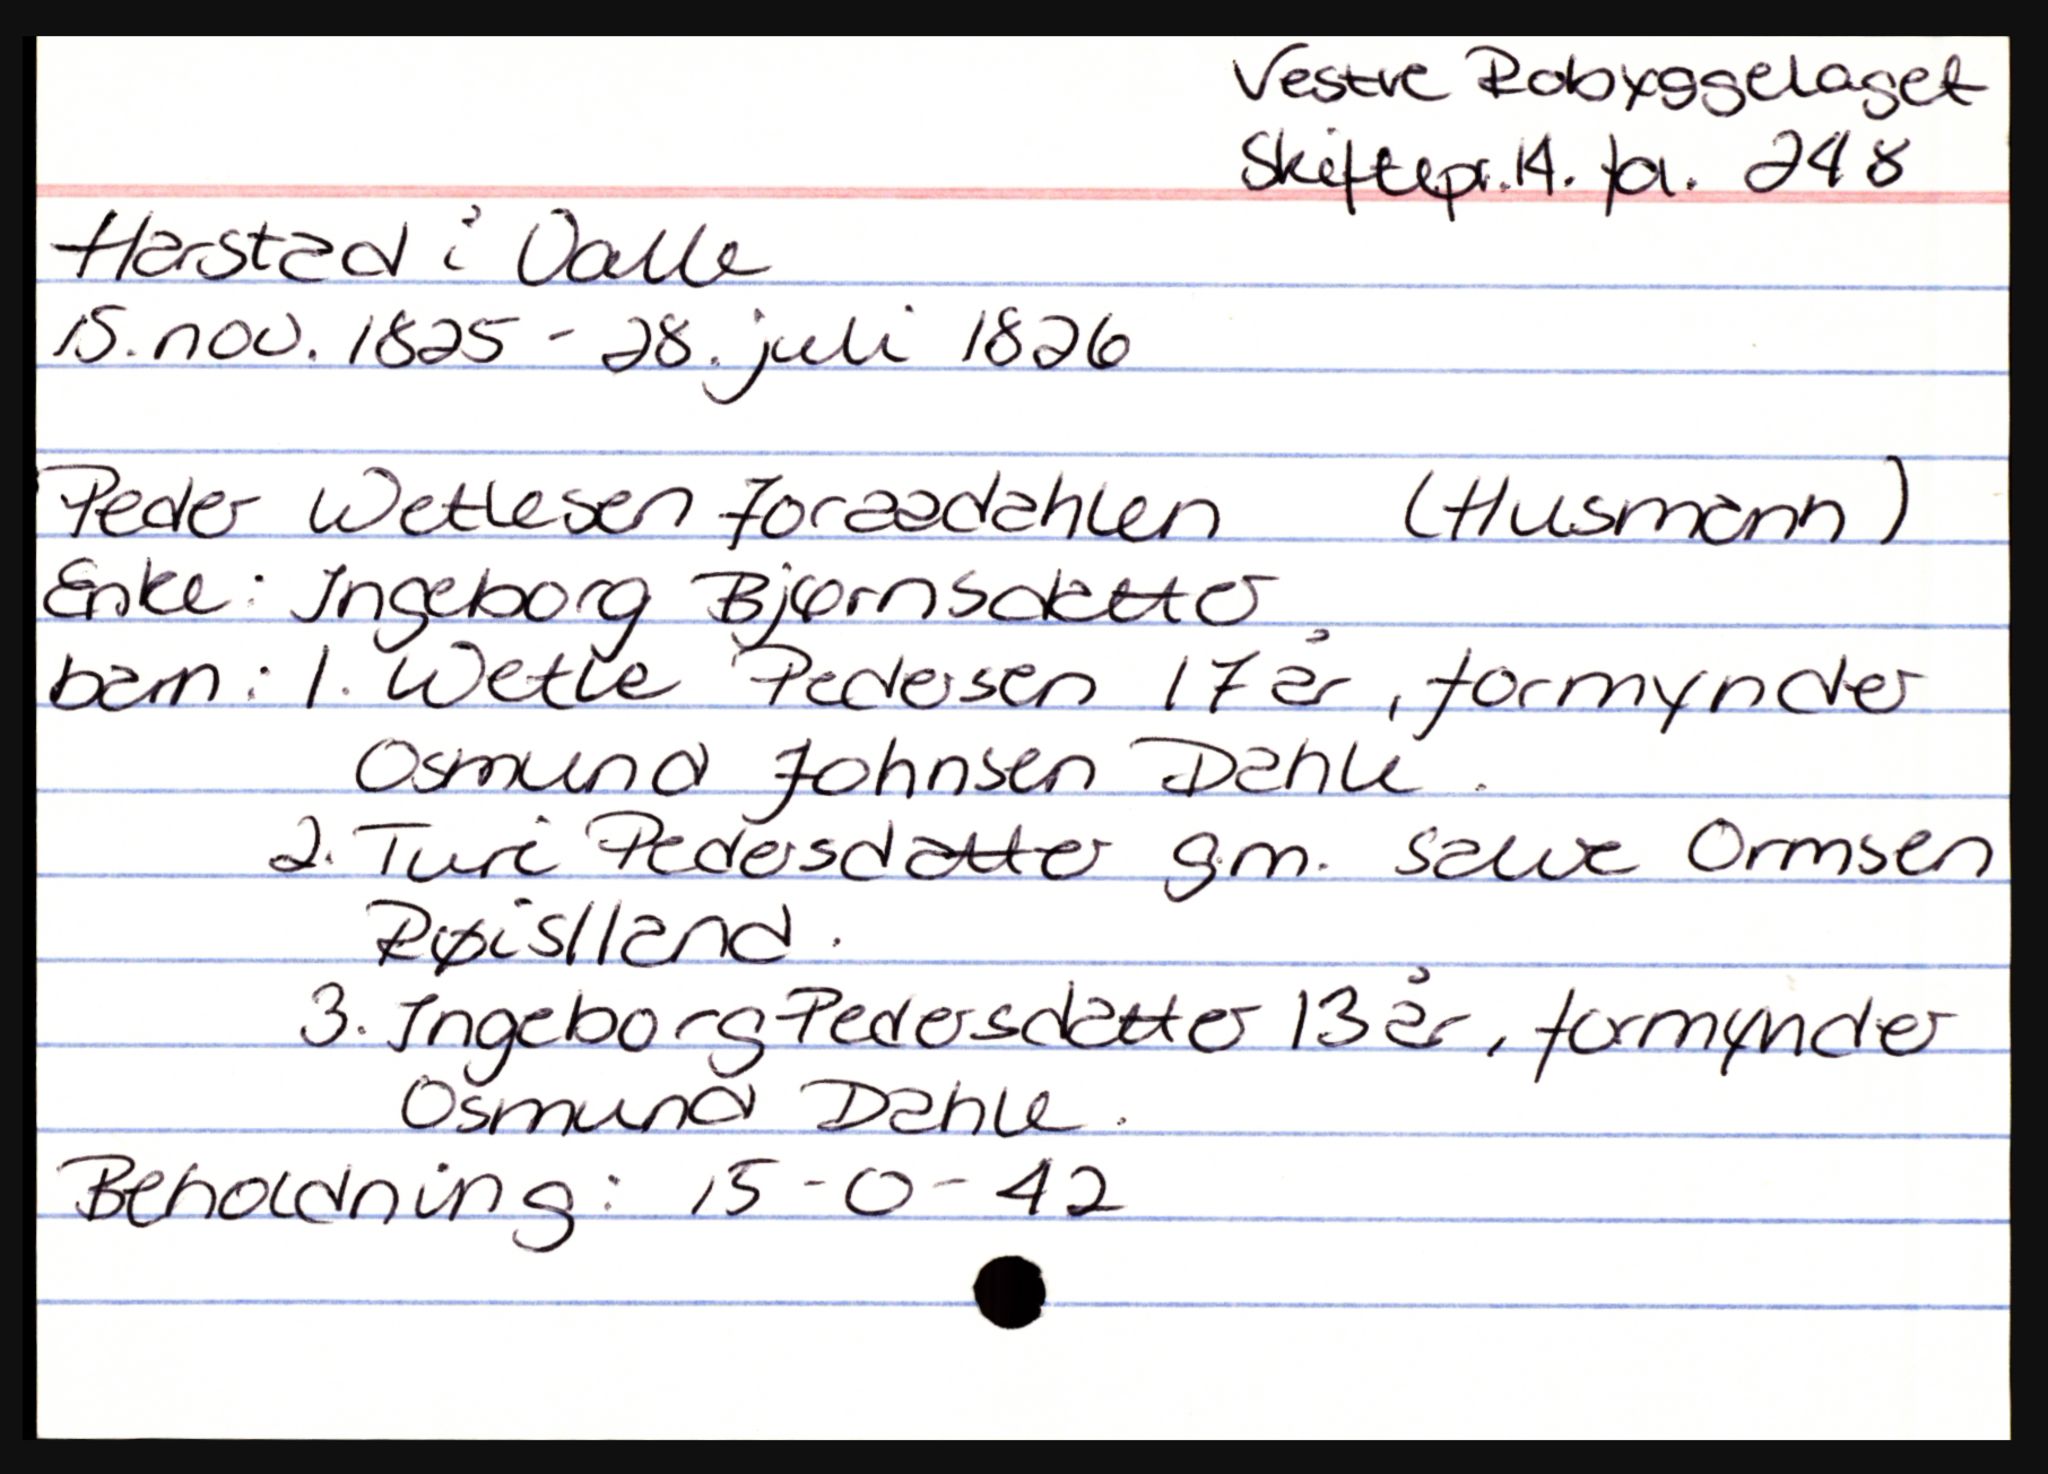 Vestre Robyggelaget
Skiftepr. 14. fol. 248
Harstad i Valle
15. nov. 1825 - 28. juli 1826
Peder Wetlesen Joraadahlen (Husmann)
Enke: Ingeborg Bjørnsdatter
barn: 1. Wetle Pedersen 17 år, formynder
Osmund Johnsen Dahle.
2. Turi Pedersdatter g.m. Salve Ormsen
Røislland.
3. Ingeborg Pedersdatter 13 år, formynder
Osmund Dahle.
Beholdning: 15-0-42